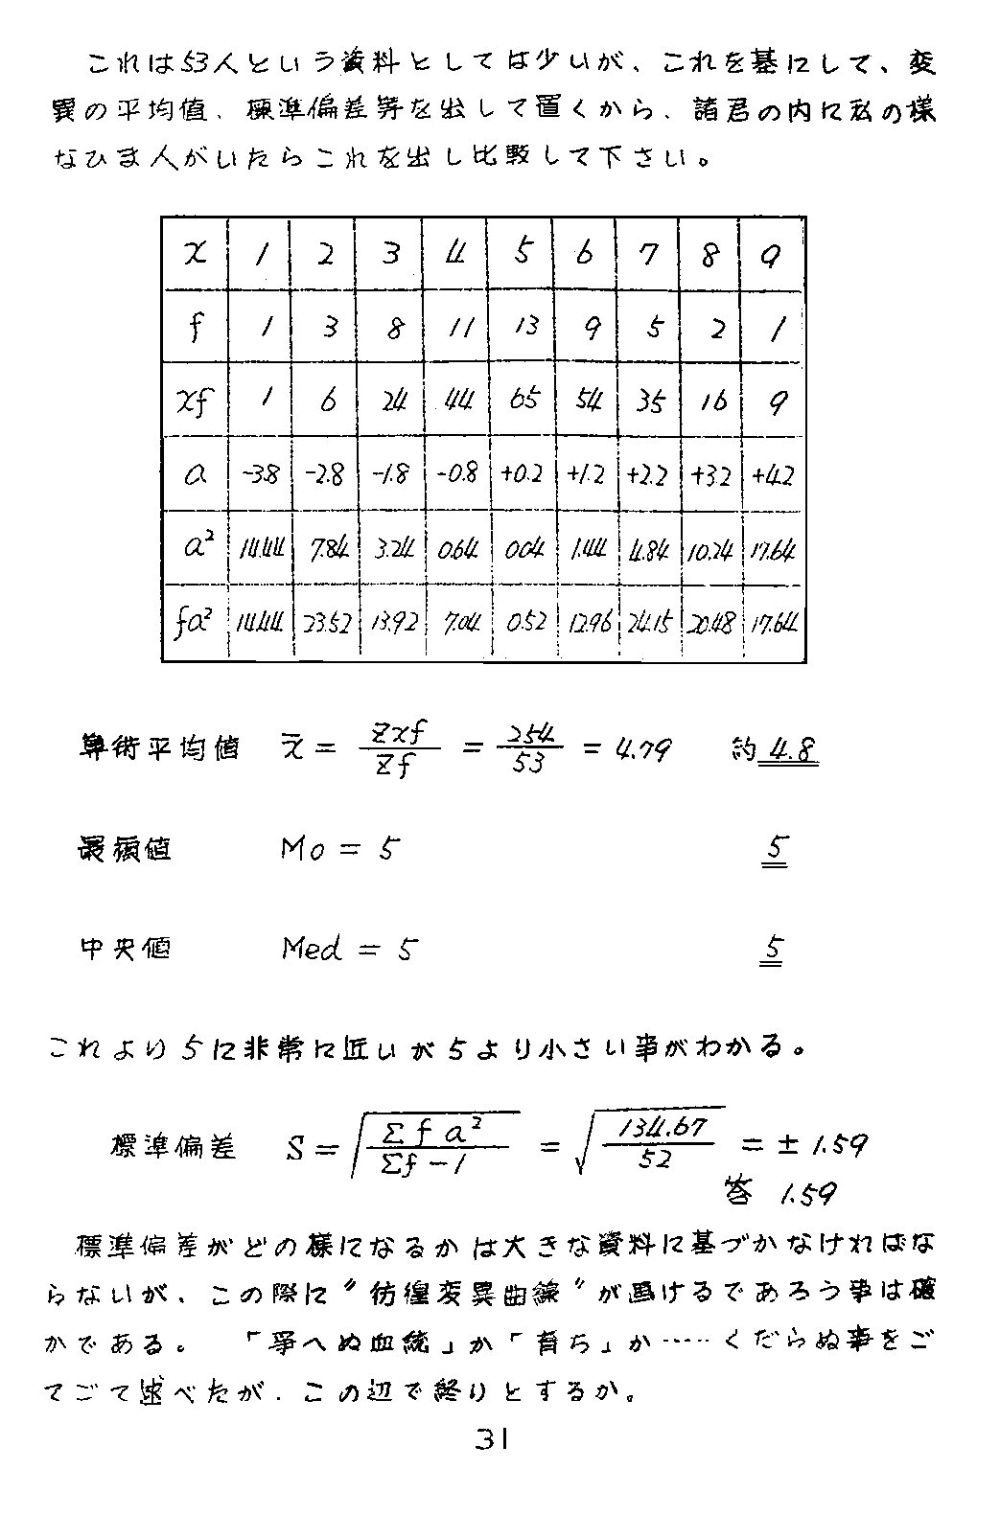 これは53人という資料としては少いが、これを基にして、変
異の平均値、標準偏差等を出して置くから、諸君の内に私の様
なひま人がいたらこれを出し比較して下さい。
x 1 2 3 4 5 6 7 8 9
f 1 3 8 11 13 9 5 2 1
xf 1 6 24 44 65 54 35 16 9
a -3.8 -2.8 -1.8 -0.8 +0.2 +1.2 +2.2 +3.2 +4.2
a² 14.44 7.84 3.24 0.64 0.04 1.44 4.84 10.24 17.64
fa² 14.44 23.52 13.92 7.04 0.52 12.96 24.15 20.48 17.64
算術平均値 x̄ = Σxf/Σf = 254/53 = 4.79 約 4.8
最頻値 Mo = 5 5
中央値 Med = 5 5
これより5に非常に近いが5より小さい事がわかる。
標準偏差 S = √(Σfa²/Σf-1) = √(134.67/52) = ± 1.59
答 1.59
標準偏差がどの様になるかは大きな資料に基づかなければな
らないが、この際に〝彷徨変異曲線〟が画けるであろう事は確
かである。 「争へぬ血統」か「育ち」か……くだらぬ事をご
てごて述べたが、この辺で終りとするか。
31